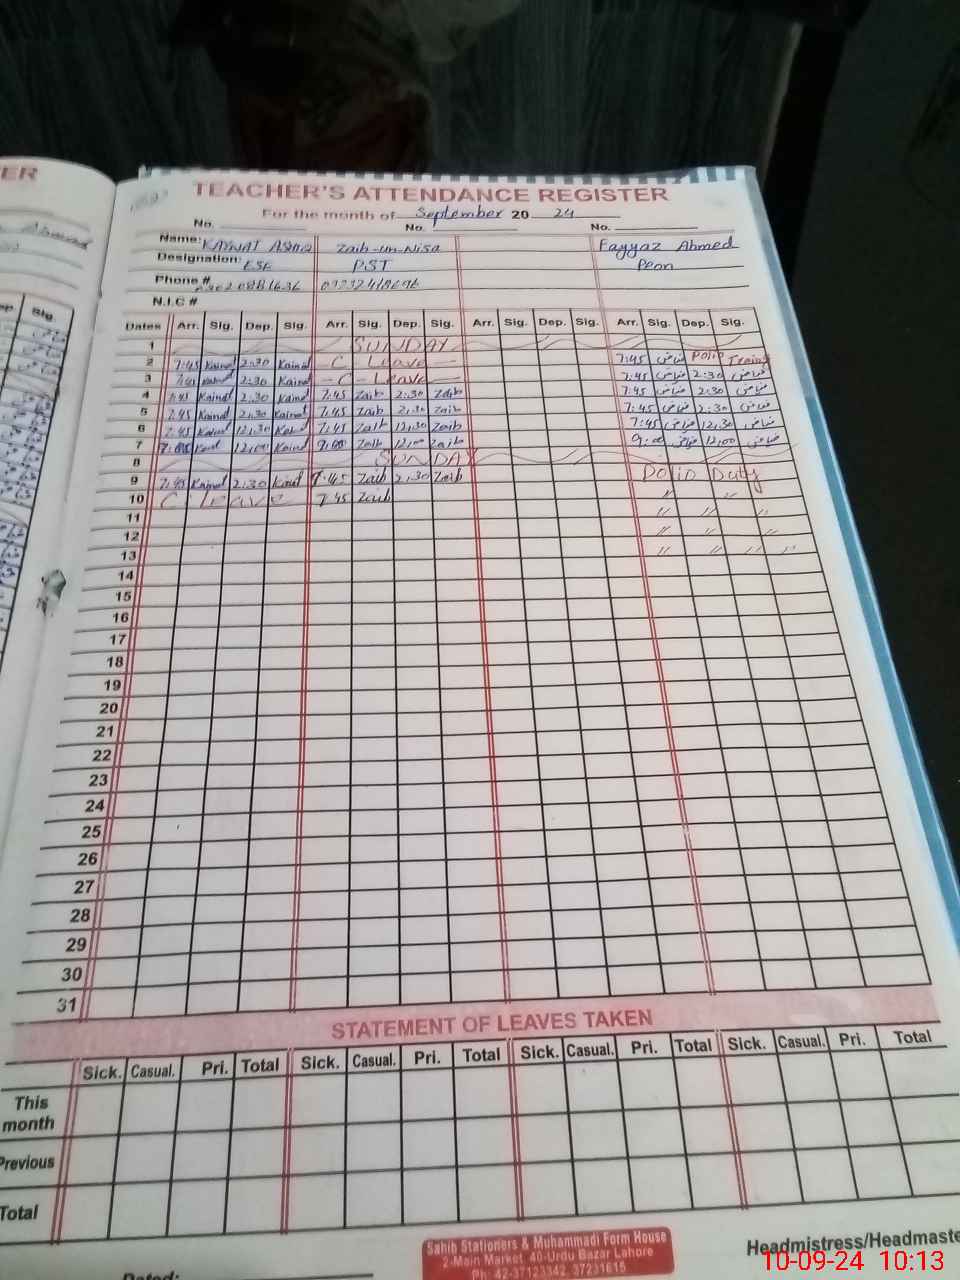 ER
Sig.
TEACHER'S ATTENDANCE REGISTER
For the month of September 20 24
No. No. No.
Name: KAYNAT ASHIQ Zaib-un-Nisa Fayyaz Ahmed
Designation: ESE PST Peon
Phone #
N.I.C #
Dates Arr. Sig. Dep. Sig. Arr. Sig. Dep. Sig. Arr. Sig. Dep. Sig. Arr. Sig. Dep. Sig.
1 SUNDAY
2 7:45 Kainat 2:30 Kainat - C Leave - 7:45 فیاض Polio
3 7:45 Kainat 2:30 Kainat - C - Leave 7:45 فیاض 2:30 فیاض
4 7:45 Kainat 2:30 Kainat 7:45 Zaib 2:30 Zaib 7:45 فیاض 2:30 فیاض
5 7:45 Kainat 2:30 Kainat 7:45 Zaib 2:30 Zaib 7:45 فیاض 2:30 فیاض
6 7:45 Kainat 12:30 7:45 Zaib 12:30 Zaib 7:45 فیاض 12:30 فیاض
7 12:00 Kainat 9:00 Zaib 12:00 Zaib 9:00 فیاض 12:00 فیاض
8 SUNDAY
9 7:45 Kainat 2:30 7:45 Zaib 2:30 Zaib Polio Duty
10 C leave 7:45 Zaib " "
11 " " "
12 " " "
13 " " " "
14
15
16
17
18
19
20
21
22
23
24
25
26
27
28
29
30
31
STATEMENT OF LEAVES TAKEN
Sick. Casual. Pri. Total Sick. Casual. Pri. Total Sick. Casual. Pri. Total Sick. Casual. Pri. Total
This
month
Previous
Total
Sahib Stationers & Muhammadi Form House
2-Main Market, 40-Urdu Bazar Lahore
Ph: 42-37123342, 37231615
Headmistress/Headmaste
Dated:
10-09-24 10:13